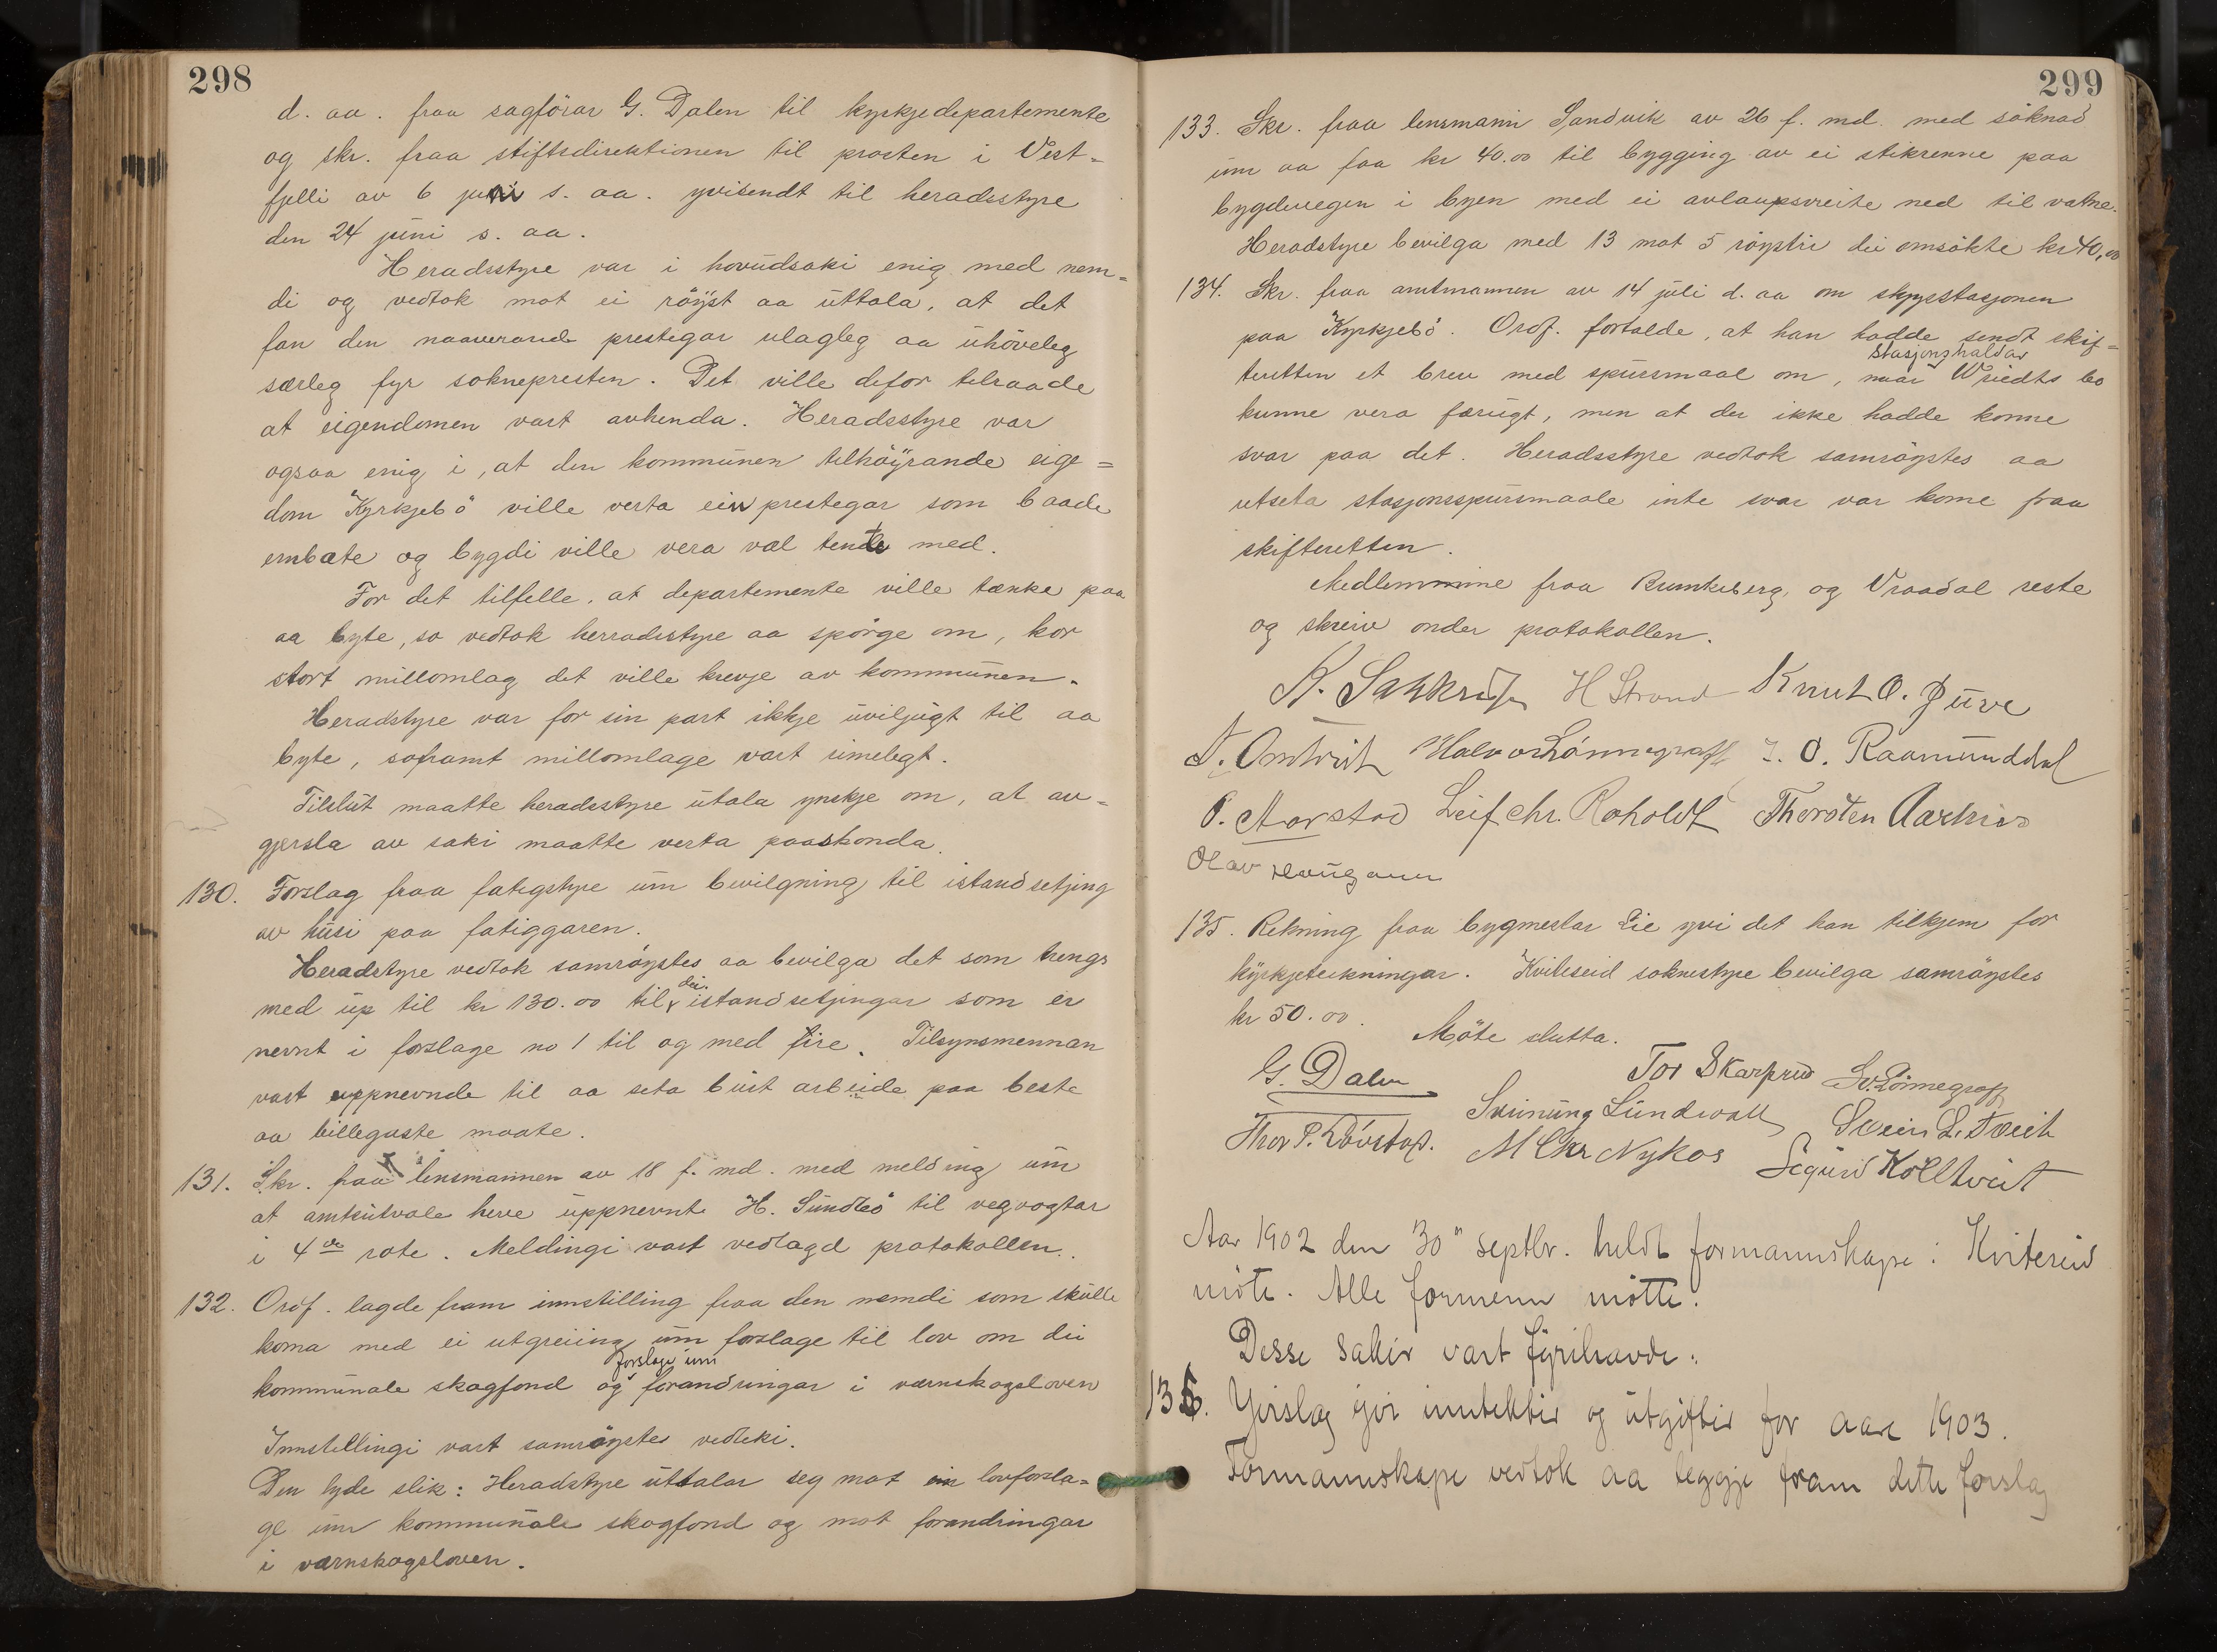 298
d. aa. fraa sagförar G. Dalen til kyrkjedepartemente
og skr. fraa stiftsdirektionen til prosten i Vest-
fjelli av 6 juni s. aa. yvisendt til heradsstyre
den 24 juni s. aa.
Heradsstyre var i hovudsaki enig med nem-
di og vedtok mot ei röyst aa uttala, at det
fan den naaverande prestegar ulagleg aa uhöveleg
særleg fyr soknepresten. Det ville defor tilraade
at eigendomen vart avhenda. Heradsstyre var
ogsaa enig i, at den kommunen tilhöyrande eige=
dom "Kyrkjebö" ville verta ein prestegar som baade
embæte og bygdi ville vera væl tente med.
For det tilfelle, at departemente ville tænke paa
aa byte, so vedtok herradsstyre aa spörge om, kor
stort millomlag det ville krevje av kommunen.
Heradstyre var for sin part ikkje uviljugt til aa
byte, soframt millomlage vart rimelegt.
Tilslut maatte heradsstyre utala ynskje om, at av-
gjersla av saki maatte verta paaskonda.
130. Forslag fraa fatigstyre um bevilgning til istandsetjing
av husi paa fatiggaren.
Heradstyre vedtok samröystes aa bevilga det som trengs
med up til kr 130.00 til dei istandsetjingar som er
nevnt i forslage no 1 til og med fire. Tilsynsmennan
vart uppnevnde til aa seta burt arbeide paa beste
aa billegaste maate.
131. Skr. fraa lensmannen av 18 f. md. med melding um
at amtsutvale heve uppnevnt H. Sundbö til vegvogtar
i 4de rote. Meldingi vart vedlagd protokollen.
132. Ordf. lagde fram innstilling fraa den nemdi som skulle
koma med ei utgreiing um forslage til lov om dei
forslage um
kommunale skogfond og forandringar i værnskogsloven
Innstillingi vart samröystes vedteki.
Den lyde slik: Heradstyre uttalar seg mot ein lovforsla=
ge um kommunale skogfond og mot forandringar
i værnskogsloven.
299
133. Skr. fraa lensmann Sandvik av 26 f. md. med söknad
um aa faa kr 40.00 til bygging av ei stikrenne paa
bygdevegen i byen med ei avlaupsveite ned til vatne.
Heradstyre bevilga med 13 mot 5 röystir dei omsökte kr 40,00
134. Skr. fraa amtmannen av 14 juli d. aa om skysstasjonen
paa "Kyrkjebö". Ordf. fortalde, at han hadde sendt skif=
stasjonshaldar
teretten et brev med spursmaal om, naar Wriedts bo
kunne vera færugt, men at der ikke hadde kome
svar paa det. Heradsstyre vedtok samröystes aa
utseta stasjonsspursmaale inte svar var kome fraa
skifteretten.
Medlemmine fraa Brunkeberg og Vraadal reste
og skreiv onder protokollen.
H Strand Knut O. Juve
Halvor Lönnegraff O. Raamunddal
O. Aarstad Leif Chr. Roholdt Thorsten
Olav Haugann
135. Rekning fraa bygmestar Lie yvi det han tilkjem for
kyrkjeteikningar. Kviteseid soknestyre bevilga samröystes
kr 50.00.
Möte slutta.
G. Dalen Tor Skarprud Sv. Lönnegraff
Sveinung Lundevall Svein L. Tveit
Thor P. M Chr Nykos Sigurd Kolltveit
Aar 1902 den 30" septbr. heldt formannskape i Kviteseid
möte. Alle formenn mötte.
Desse sakir vart fyrihavde:
136. Yvirslag yvir inntektir og utgiftir for aare 1903.
Formannskape vedtok aa leggje fram dette forslag